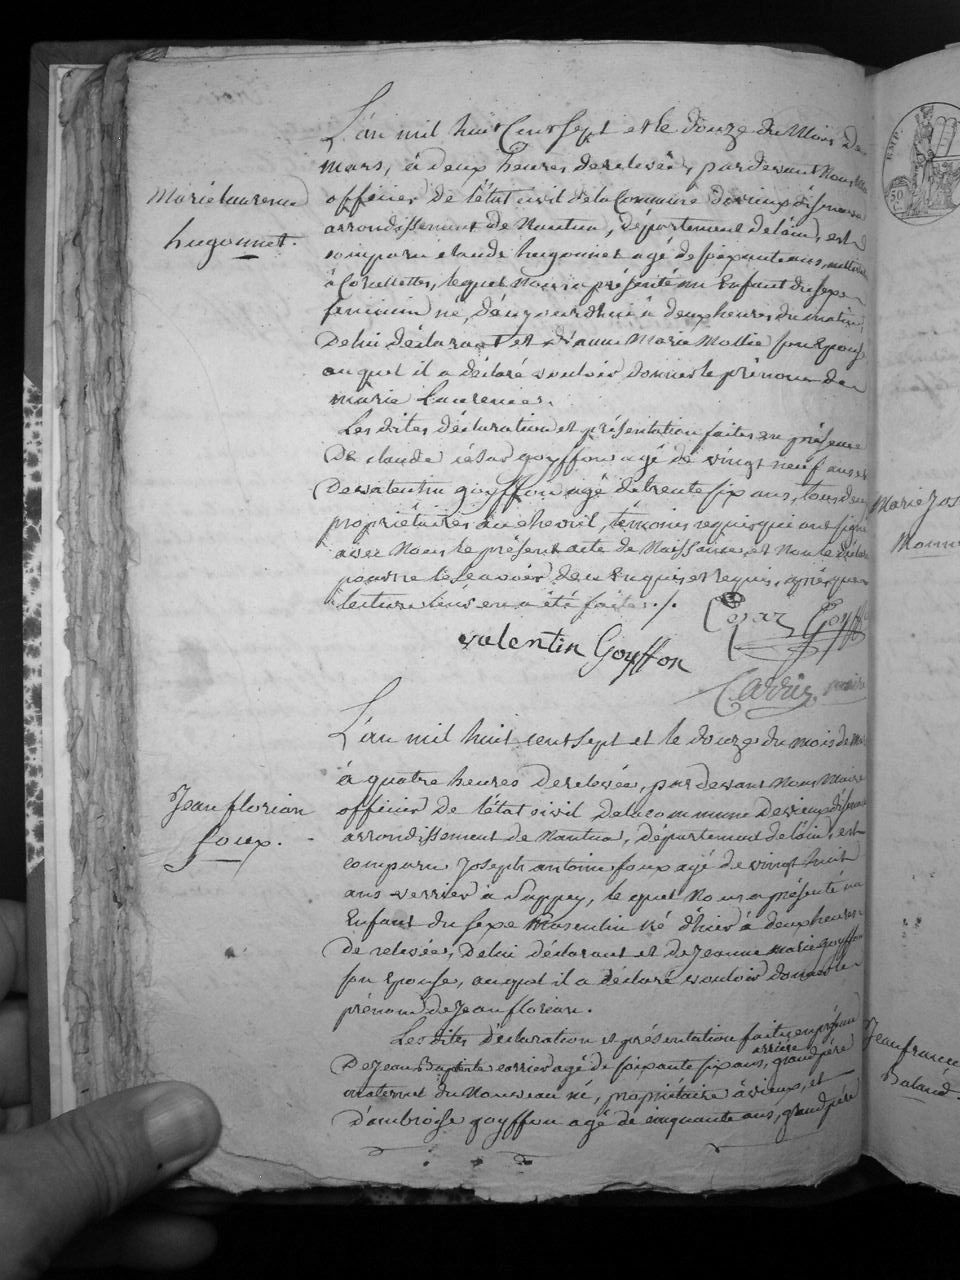 L'an mil huit Cent Sept et le douze du Mois de
mars, à deux heures de relevée, par devant Nous
officier de l'état civil de la Commune de vieux d'isenave
arrondissement de Nantua, département de l'ain, est
comparu claude hugonnet agé de soixante ans,
à Corcellettes, lequel Nous a présenté un Enfant du sexe
feminin né, d'aujourd'hui à deux heures du matin,
De lui déclarant et d'anne Marie Mollie son Epouse
auquel il a déclaré vouloir donner le prénom de
marie Laurence.
Marie laurence
hugonnet.
Les dites déclaration et présentation faites en présence
De claude césar goyffon agé de vingt neuf ans et
De valentin goyffon agé de trente six ans, tous deux
propriétaires au chevril, témoins requis qui ont signé
avec Nous le présent acte de Naissance, et non le
pour ne le savoir de ce Enquis et requis, après que
lecture leur en a été faite ./.
Cesar Goyff
valentin Goyffon
maire
L'an mil huit cent sept et le douze du mois de
à quatre heures de relevée, par devant Nous Maire
officier de l'état civil de la commune de vieux d'isenave
arrondissement de Nantua, département de l'ain, est
comparu Joseph antoine foux agé de vingt huit
ans verrier à Lappey, lequel Nous a présenté un
Enfant du sexe Masculin né d'hier à deux heures
De relevée, De lui déclarant et de Jeanne marie goyffon
son Epouse, auquel il a déclaré vouloir donner le
prénom de Jean florian.
Jean florian
foux.
Les dites déclaration et présentation faites en présence
De Jean Baptiste carrier agé de soixante six ans, arriere grand père
maternel du Nouveau né, propriétaire à vieux, et
D'ambroise goyffon agé de cinquante ans, grand père
EMP.
50
C.
Marie Jos
Jean francoi
Baland.